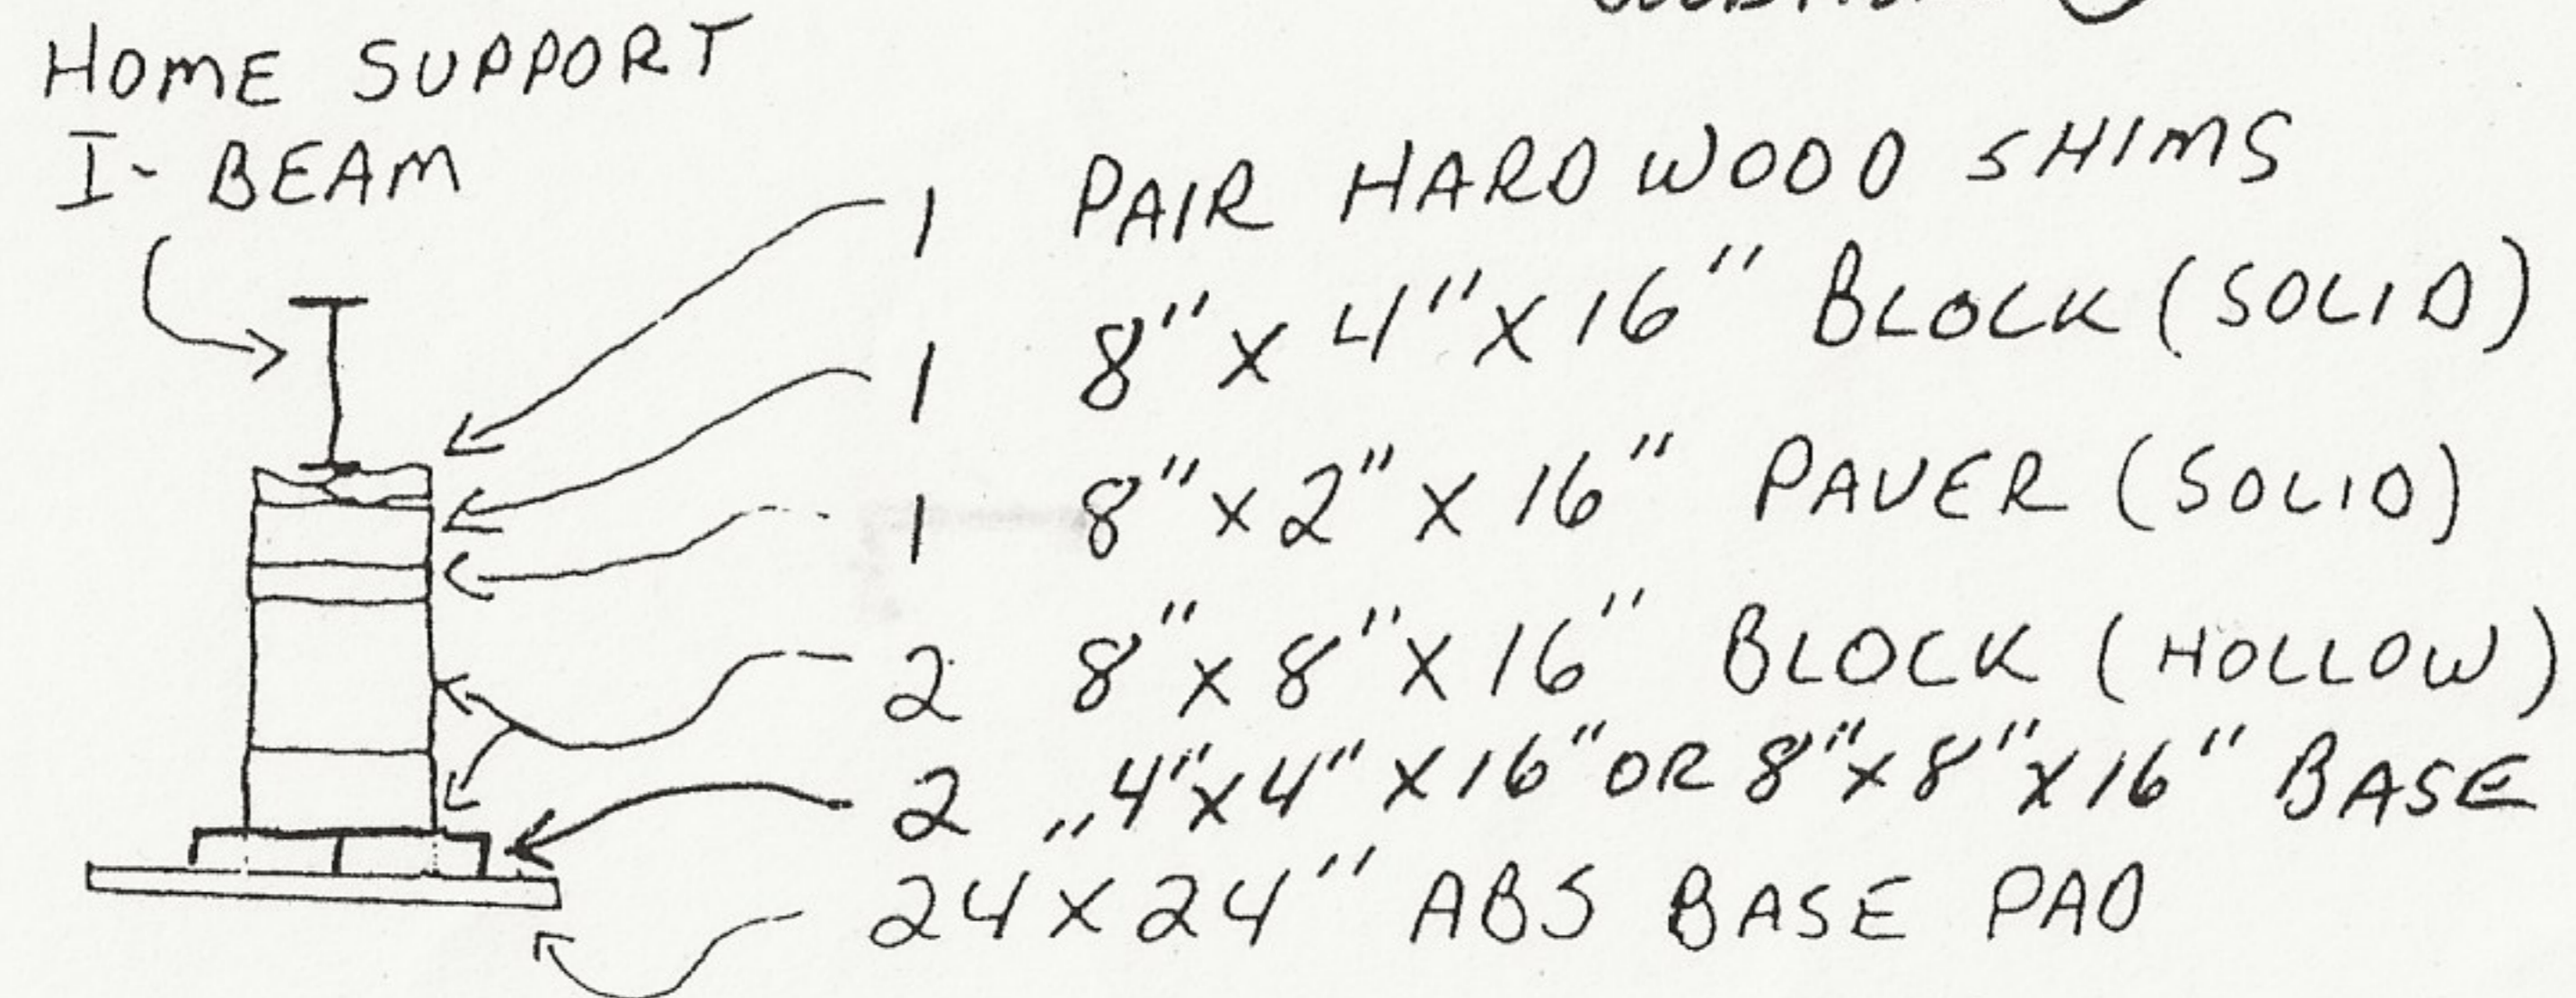 HOME SUPPORT
I- BEAM
1 PAIR HARDWOOD SHIMS
1 8" X 4" X 16" BLOCK (SOLID)
1 8" X 2" X 16" PAVER (SOLID)
2 8" X 8" X 16" BLOCK (HOLLOW)
2 ,,4" X 4" X 16" OR 8" X 8" X 16" BASE
24 X 24" ABS BASE PAD